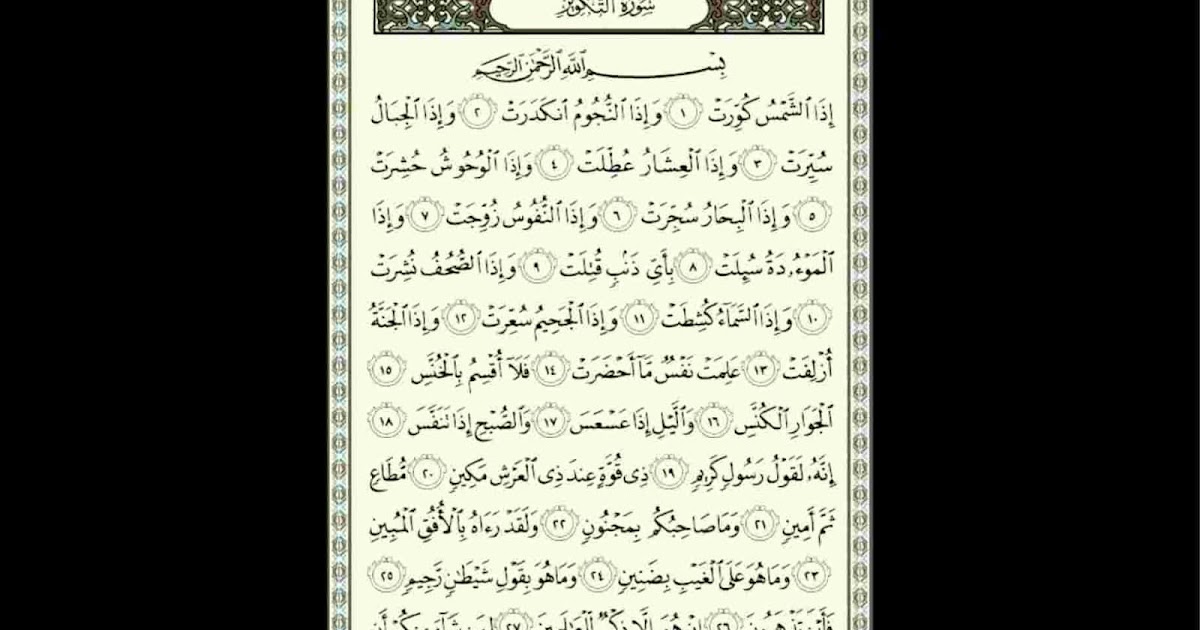 سُورَةُ التَّكْوِيرِ
بِسْمِ ٱللَّهِ ٱلرَّحْمَٰنِ ٱلرَّحِيمِ
إِذَا ٱلشَّمْسُ كُوِّرَتْ ١ وَإِذَا ٱلنُّجُومُ ٱنكَدَرَتْ ٢ وَإِذَا ٱلْجِبَالُ
سُيِّرَتْ ٣ وَإِذَا ٱلْعِشَارُ عُطِّلَتْ ٤ وَإِذَا ٱلْوُحُوشُ حُشِرَتْ
٥ وَإِذَا ٱلْبِحَارُ سُجِّرَتْ ٦ وَإِذَا ٱلنُّفُوسُ زُوِّجَتْ ٧ وَإِذَا
ٱلْمَوْءُۥدَةُ سُئِلَتْ ٨ بِأَىِّ ذَنۢبٍ قُتِلَتْ ٩ وَإِذَا ٱلصُّحُفُ نُشِرَتْ
١٠ وَإِذَا ٱلسَّمَآءُ كُشِطَتْ ١١ وَإِذَا ٱلْجَحِيمُ سُعِّرَتْ ١٢ وَإِذَا ٱلْجَنَّةُ
أُزْلِفَتْ ١٣ عَلِمَتْ نَفْسٌ مَّآ أَحْضَرَتْ ١٤ فَلَآ أُقْسِمُ بِٱلْخُنَّسِ ١٥
ٱلْجَوَارِ ٱلْكُنَّسِ ١٦ وَٱلَّيْلِ إِذَا عَسْعَسَ ١٧ وَٱلصُّبْحِ إِذَا تَنَفَّسَ ١٨
إِنَّهُۥ لَقَوْلُ رَسُولٍ كَرِيمٍ ١٩ ذِى قُوَّةٍ عِندَ ذِى ٱلْعَرْشِ مَكِينٍ ٢٠ مُّطَاعٍ
ثَمَّ أَمِينٍ ٢١ وَمَا صَاحِبُكُم بِمَجْنُونٍ ٢٢ وَلَقَدْ رَءَاهُ بِٱلْأُفُقِ ٱلْمُبِينِ
٢٣ وَمَا هُوَ عَلَى ٱلْغَيْبِ بِضَنِينٍ ٢٤ وَمَا هُوَ بِقَوْلِ شَيْطَٰنٍ رَّجِيمٍ ٢٥
فَأَيْنَ تَذْهَبُونَ ٢٦ إِنْ هُوَ إِلَّا ذِكْرٌ لِّلْعَٰلَمِينَ ٢٧ لِمَن شَآءَ مِنكُمْ أَن